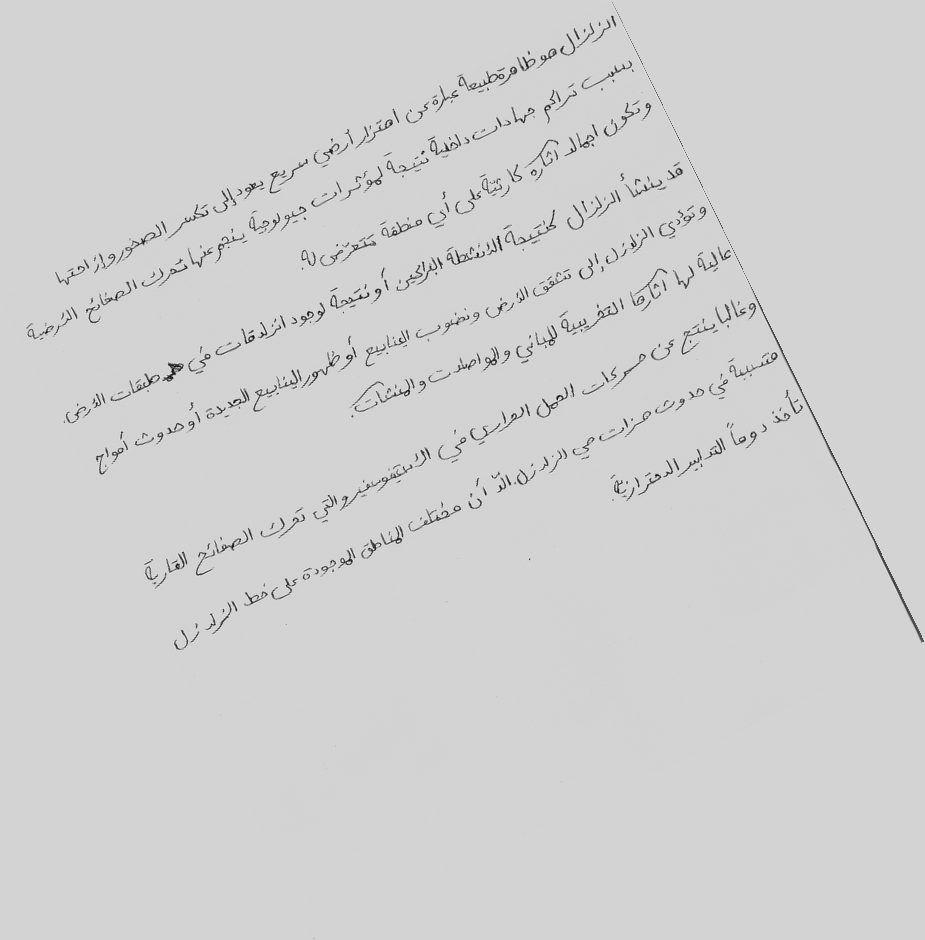 الزلزال هو ظاهرة طبيعة عبارة عن اهتزاز أرضي سريع يعود إلى تكسر الصخور وإزاحتها
بسبب تراكم جهادات داخلية نتيجة لمؤثرات جيولوجية ينجم عنها تحرك الصفائح الأرضية
وتكون اجمالا اثاره كارثية على أي منطقة تتعرض له.
قد ينشأ الزلزال كنتيجة الأنشطة البراكين أو نتيجة لوجود انزلاقات في طبقات الأرض.
وتؤدي الزلازل إلى تشقق الأرض ونضوب الينابيع أو ظهور الينابيع الجديدة أو حدوث أمواج
عالية لها اثارها التخريبية للمباني والمواصلات والمنشآت.
وغالبا ينتج عن حركات الحمل الحراري في الاستينوسفير والتي تحرك الصفائح القارية
متسببة في حدوث هزات هي الزلازل. الّا أن مختلف المناطق الموجودة على خط الزلازل
تأخذ دوماً التدابير الاحترازية.